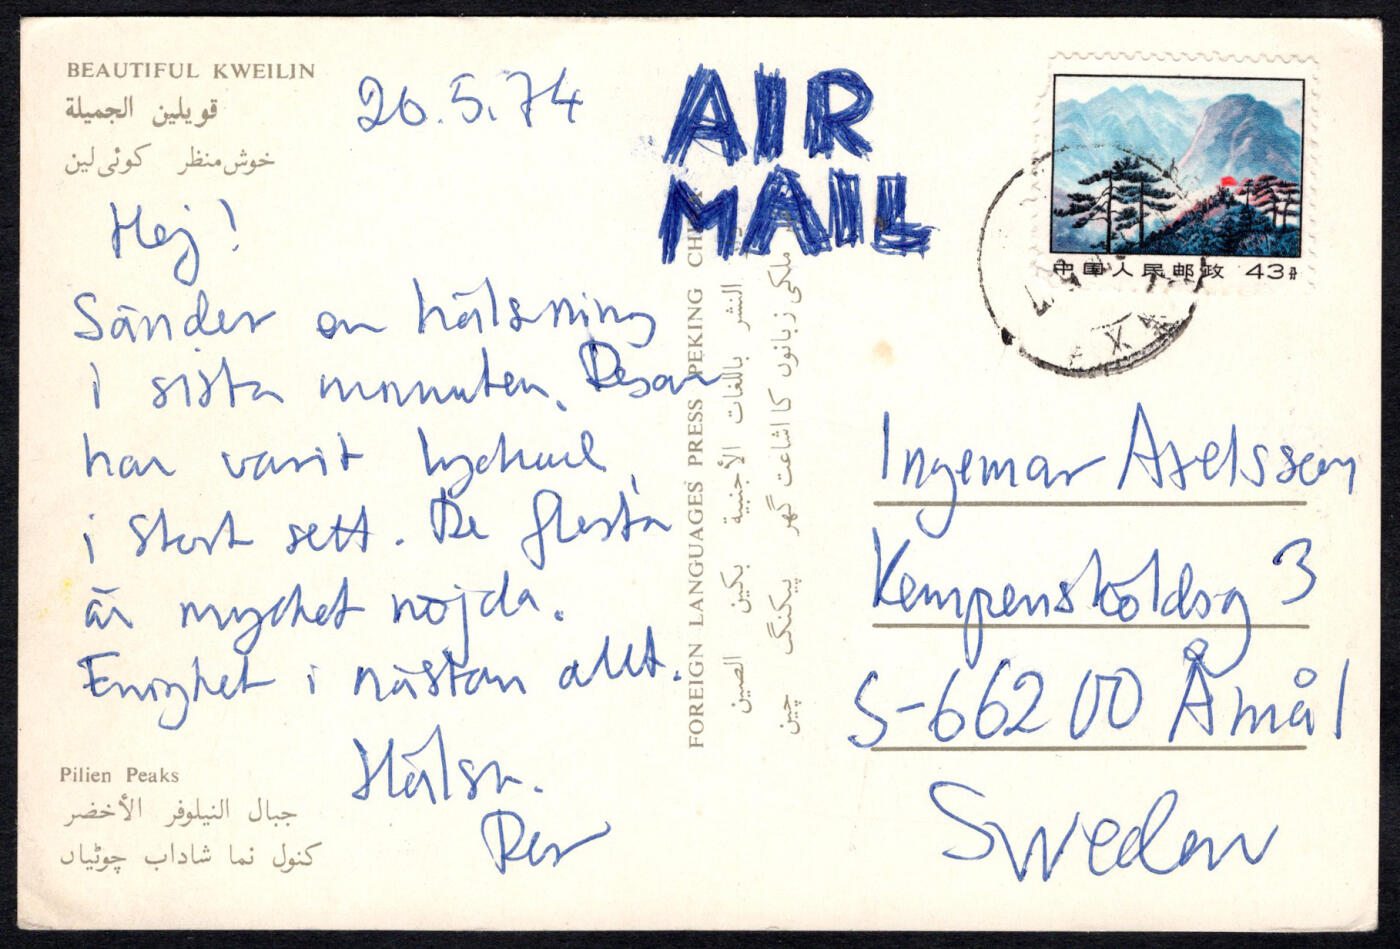 BEAUTIFUL KWEILIN
قويلين الجميلة
خوش‌منظر كوئى لين
26.5.74
Hej!
Sänder en hälsning
i sista minuten. Resan
har varit lyckad
i stort sett. De flesta
är mycket nöjda.
Enighet i nästan allt.
Hälsn.
Per
Pilien Peaks
جبال النيلوفر الأخضر
كنول نما شاداب چوٹياں
FOREIGN LANGUAGES PRESS PEKING CHINA
النشر باللغات الأجنبية بكين الصين
ملكى زبانوں كا اشاعت گهر پيكنگ چين
AIR
MAIL
中国人民邮政 43分
Ingemar Axelsson
Kempensköldsg 3
S-66200 Åmål
Sweden